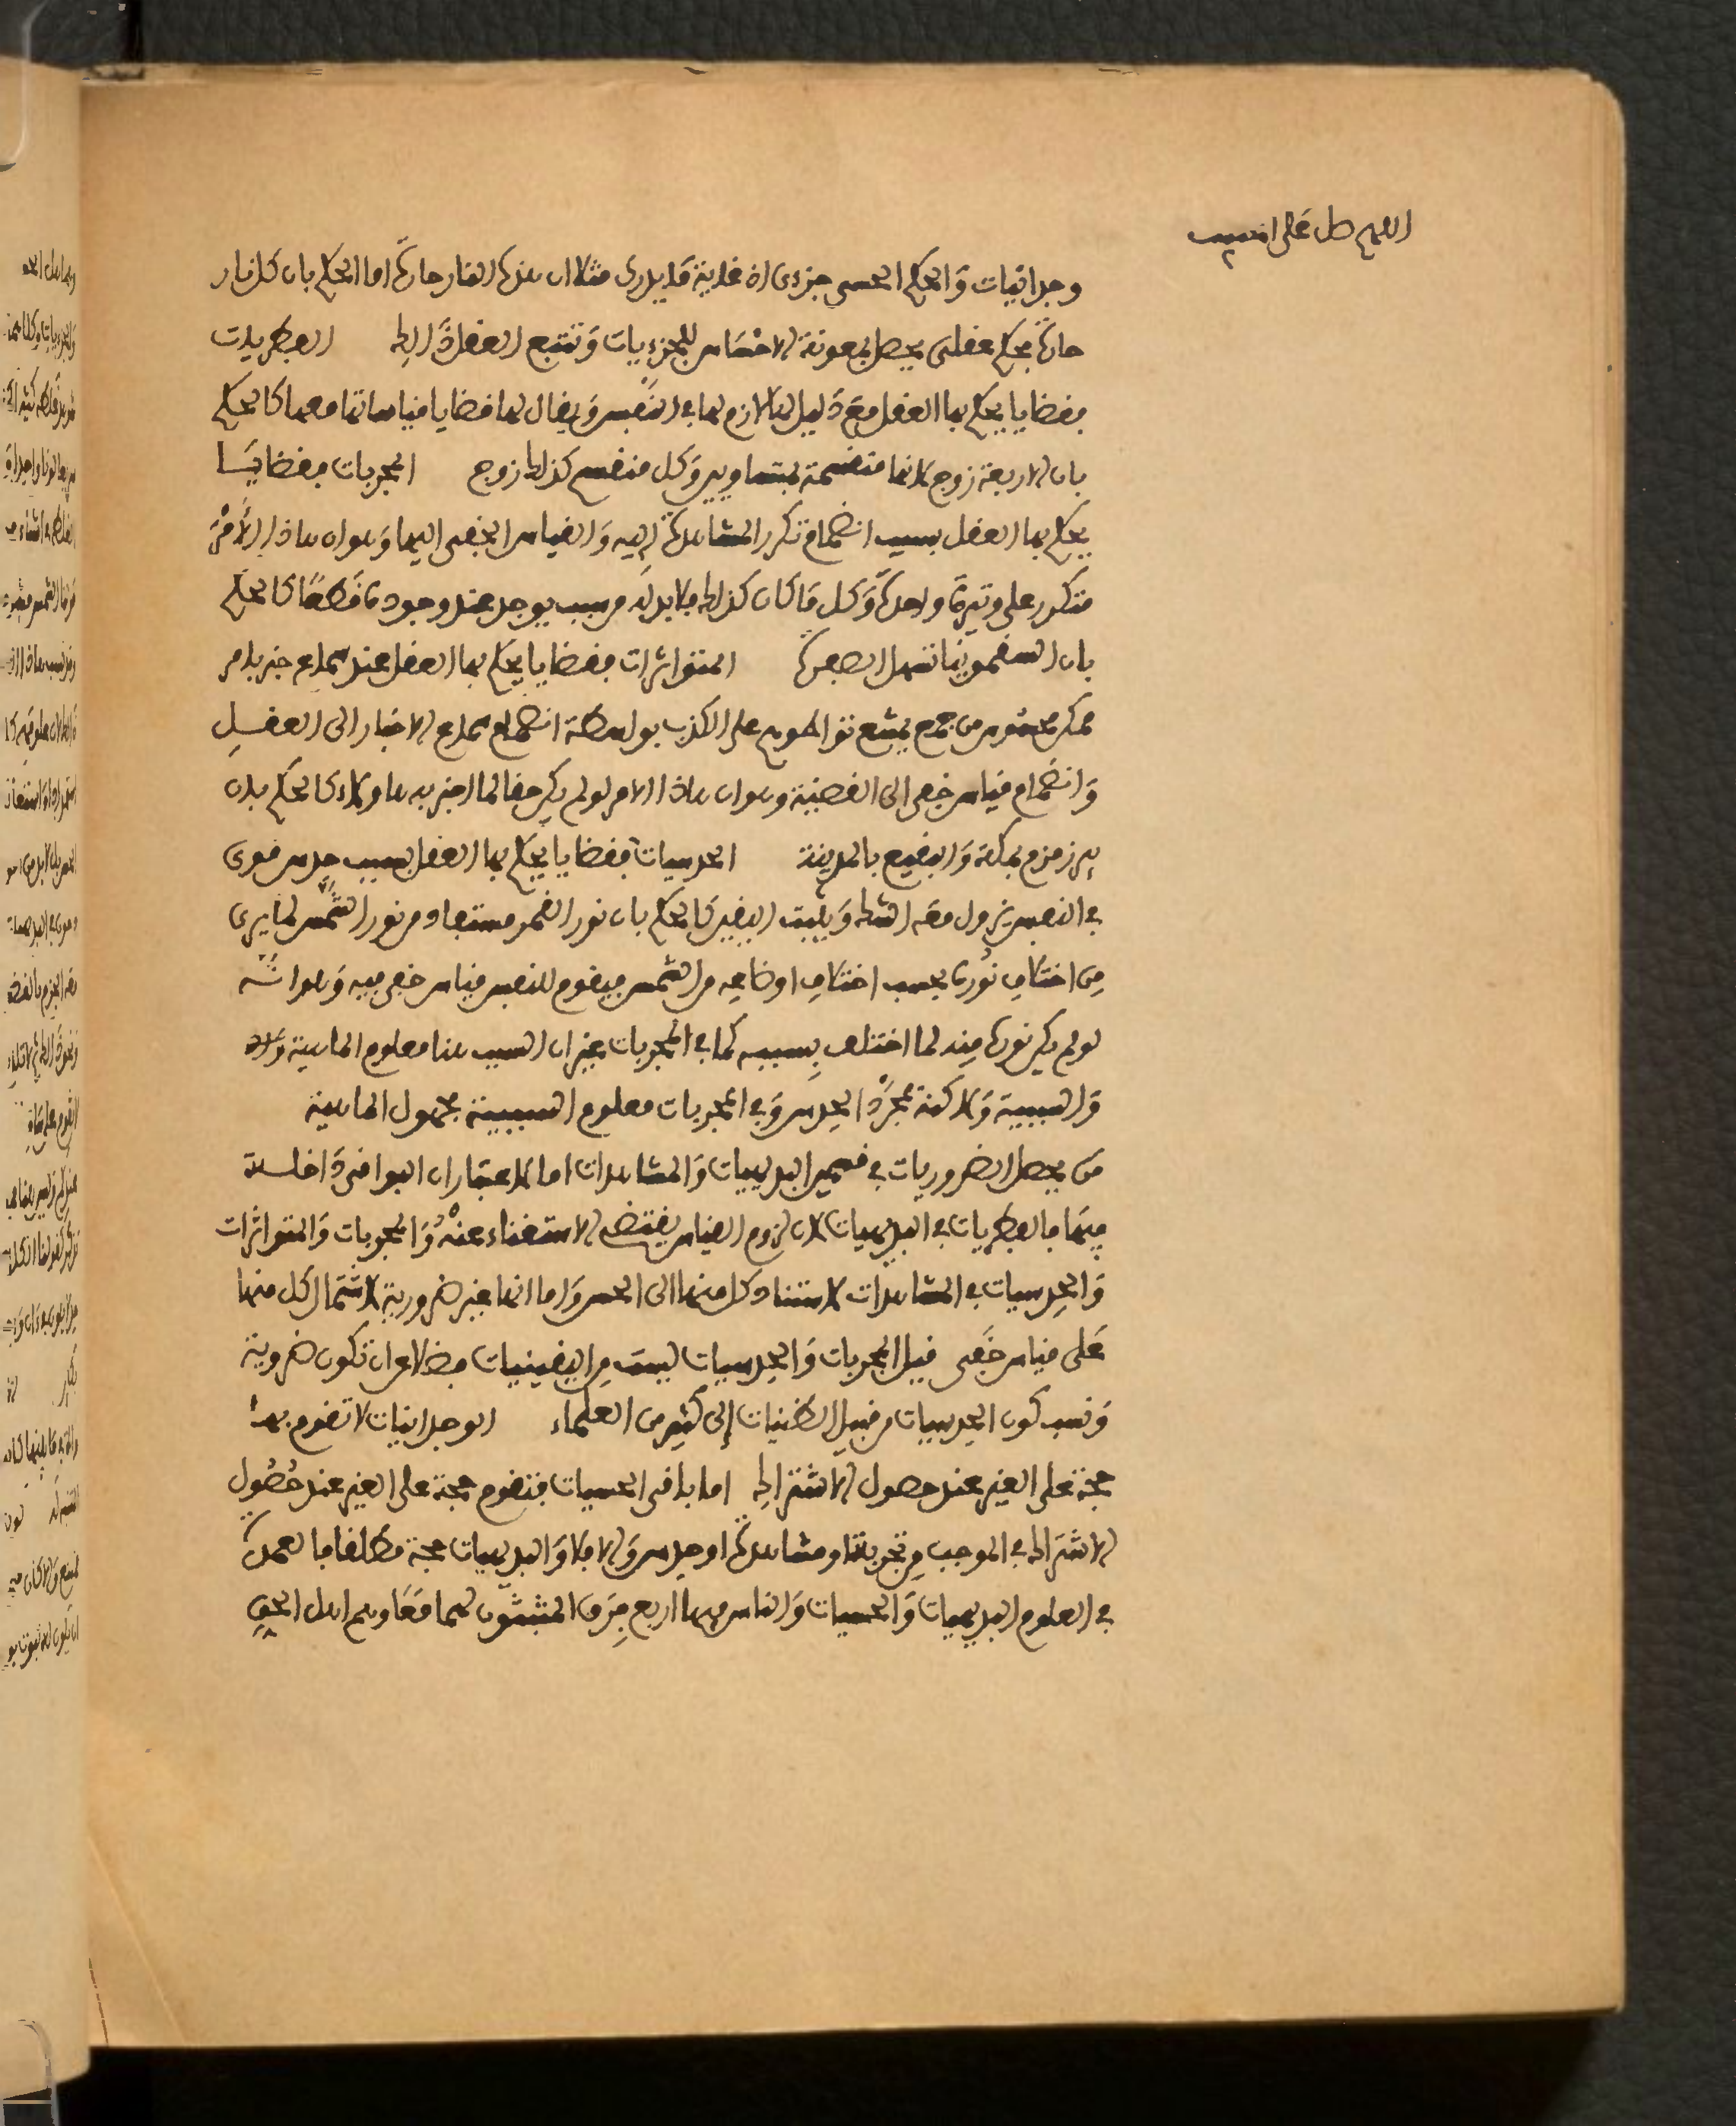 اللهم صل على الحبيب
وجدانيات والحكم الحسي جزءي اذ غاية ما يدرى مثلا ان هذه النار حارة اما الحكم بان كل نار
حارة فحكم عقلي يحصل بمعونة الاحساس للجزءيات وتتبع العقل ذالك الفطريات
فقضايا يحكم بها العقل مع دليل لها لازم لها في النفس ويقال لها قضايا قياساتها معها كالحكم
بان الاربعة زوج لانها منقسمة بمتساويين وكل منقسم كذلك زوج المجربات فقضايا
يحكم بها العقل بسبب انضمام تكرر المشاهدة اليه والقياس الخفي اليها وهو ان هاذا الامر
متكرر على وتيرة واحدة وكل ما كان كذلك فلا بد له من سبب يوجد عند وجوده قطعا كالحكم
بان السقمونيا تسهل الصفرة المتواترات فقضايا يحكم بها العقل عند سماع خبر بامر
ممكن محسوس من جمع يمتنع تواطؤهم على الكذب بواسطة انضمام سماع الاخبار الى العقل
وانضمام قياس خفي الى القضية وهو ان هاذا الامر لو لم يكن حقا لما اخبر به هاؤلاء كالحكم بان
بير زمزم بمكة والبقيع بالمدينة الحدسيات فقضايا يحكم بها العقل بسبب حدس قوي
في النفس يزول معه الشك ويثبت اليقين كالحكم بان نور القمر مستفاد من نور الشمس لما يرى
من اختلاف نوره بحسب اختلاف اوضاعه من الشمس فيقوم للنفس قياس خفي فيه وهو انه
لو لم يكن نوره منه لما اختلف بسببه كما في المجربات غير ان السبب هنا معلوم الماهية
والسببية ولاكنه مجرد الحدس وفي المجربات معلوم السببية مجهول الماهية
من يحصل الضروريات في قسمين البديهيات والمشاهدات اما لاعتبار ان البواقي داخلة
فيهما فالفطريات في البديهيات لان لزوم القياس يقتضي الاستغناء عنه والمجربات والمتواترات
والحدسيات في المشاهدات لاستناد كل منها الى الحس واما انها غير ضرورية لاشتمال كل منها
على قياس خفي قيل المجربات والحدسيات ليست من اليقينيات فضلا عن ان تكون ضرورية
ونسب كون الحدسيات من قبيل الظنيات إلى كثير من العلماء الوجدانيات لا تقوم بها
حجة على الغير عند حصول الاشتراك اما باقي الحسيات فتقوم حجة على الغير عند حصول
الاشتراك في الموجب من تجربة او مشاهدة او حدس والا فلا والبديهيات حجة مطلقا فالعمدة
في العلوم البديهيات والحسيات والناس فيهما اربع فرق المثبتون لهما معا وهم اهل الحق